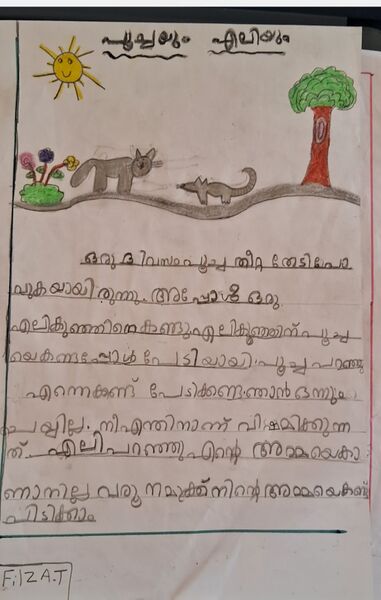 പൂച്ചയും എലിയും
ഒരു ദിവസം പൂച്ച തീറ്റ തേടിപോ
വുകയായിരുന്നു. അപ്പോൾ ഒരു
എലികുഞ്ഞിനെകണ്ടു എലികുഞ്ഞിന് പൂച്ച
യെകണ്ടപ്പോൾ പേടിയായി. പൂച്ച പറഞ്ഞു
എന്നെകണ്ട് പേടിക്കണ്ട. ഞാൻ ഒന്നും
ചെയ്യില്ല. നീഎന്തിനാണ് വിഷമിക്കുന്ന
ത്. എലി പറഞ്ഞു എന്റെ അമ്മയെകാ
ണാനില്ല വരൂ നമുക്ക് നിന്റെ അമ്മയെകണ്ടു
പിടിക്കാം
FilZA.T